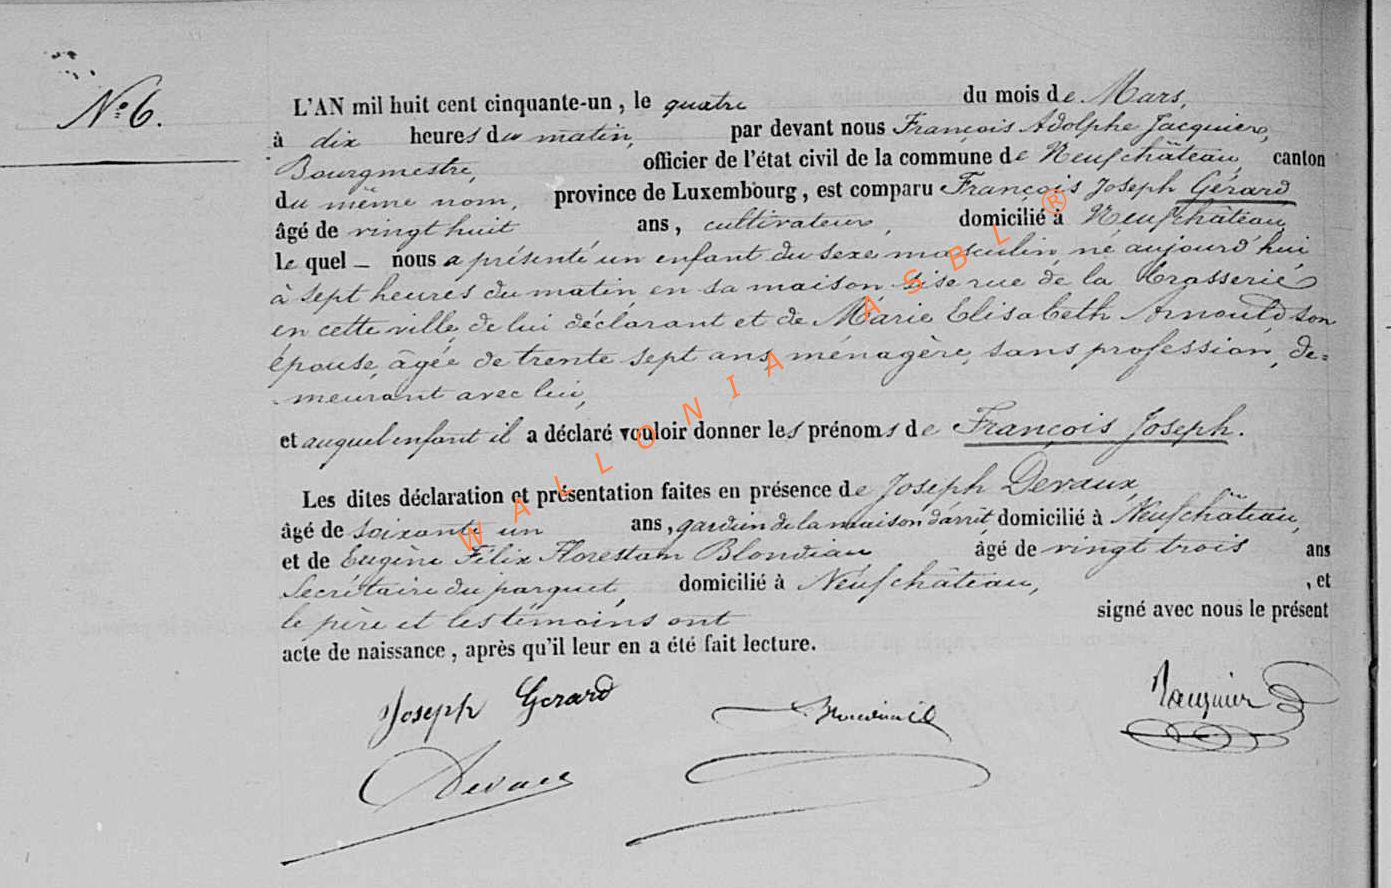 N° 6.
L'AN mil huit cent cinquante-un, le quatre du mois de Mars,
à dix heures du matin, par devant nous François Adolphe Jacquier,
Bourgmestre, officier de l'état civil de la commune de Neufchâteau, canton
du même nom, province de Luxembourg, est comparu François Joseph Gérard
âgé de vingt huit ans, cultivateur, domicilié à Neufchâteau
le quel _ nous a présenté un enfant du sexe masculin, né aujourd'hui
à sept heures du matin, en sa maison sise rue de la Brasserie
en cette ville, de lui déclarant et de Marie Elisabeth Arnould, son
épouse, âgée de trente sept ans, ménagère, sans profession, de=
meurant avec lui,
et auquel enfant il a déclaré vouloir donner les prénoms de François Joseph.
Les dites déclaration et présentation faites en présence de Joseph Devaux,
âgé de soixante un ans, gardien de la maison d'arrêt domicilié à Neufchâteau,
et de Eugène Félix Florestan Blondiau âgé de vingt trois ans
Secrétaire du parquet, domicilié à Neufchâteau, , et
le père et les témoins ont signé avec nous le présent
acte de naissance, après qu'il leur en a été fait lecture.
Joseph Gerard
Jacquier
Devaux
WALLONIA ASBL ®